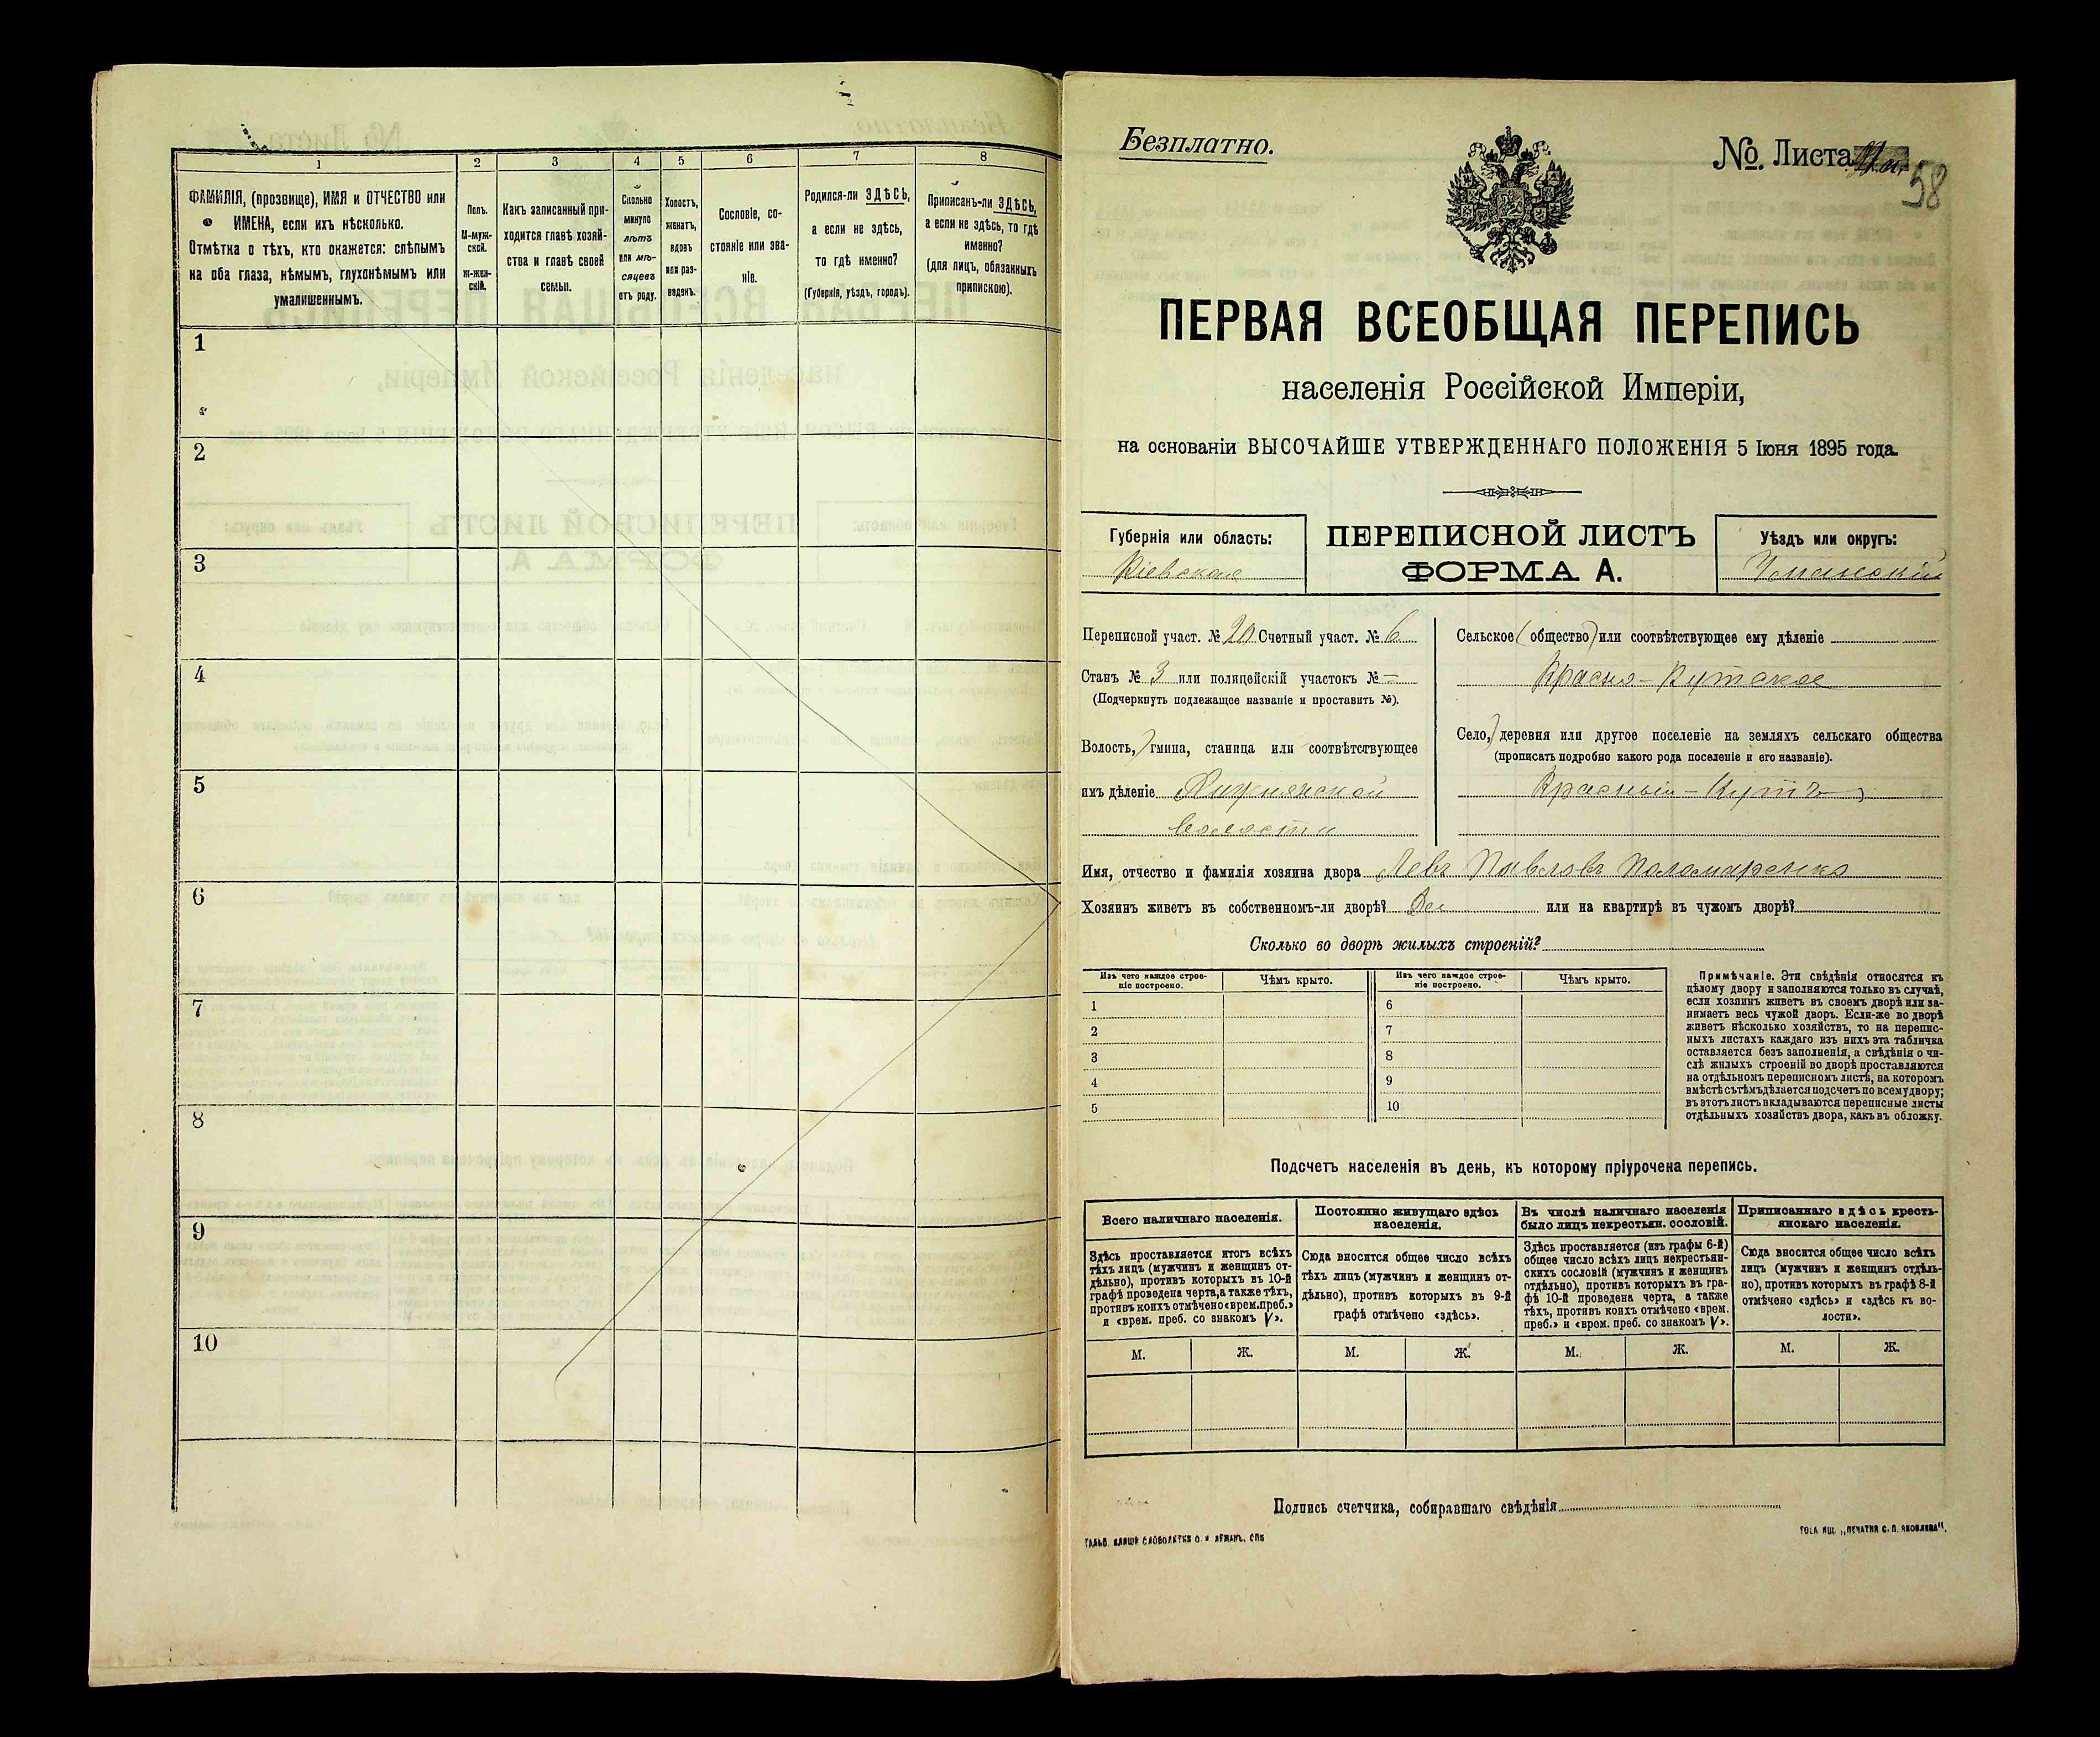 1
2
3
4
5
6
7
8
ФАМИЛІЯ, (прозвище), ИМЯ и ОТЧЕСТВО или
ИМЕНА, если ихъ нѣсколько.
Отмѣтка о тѣхъ, кто окажется: слѣпымъ
на оба глаза, нѣмымъ, глухонѣмымъ или
умалишеннымъ.
Полъ.
М-муж-
ской.
Ж-жен-
скій.
Какъ записанный при-
ходится главѣ хозяй-
ства и главѣ своей
семьи.
Сколько
минуло
лѣтъ
или мѣ-
сяцевъ
отъ роду.
Холостъ,
женатъ,
вдовъ
или раз-
веденъ.
Сословіе, со-
стояніе или зва-
ніе.
Родился-ли ЗДѢСЬ,
а если не здѣсь,
то гдѣ именно?
(Губернія, уѣздъ, городъ).
Приписанъ-ли ЗДѢСЬ,
а если не здѣсь, то гдѣ
именно?
(для лицъ, обязанныхъ
припискою).
1
2
3
4
5
6
7
8
9
10
Безплатно.
№ Листа
58
ПЕРВАЯ ВСЕОБЩАЯ ПЕРЕПИСЬ
населенія Россійской Имперіи,
на основаніи ВЫСОЧАЙШЕ УТВЕРЖДЕННАГО ПОЛОЖЕНІЯ 5 Іюня 1895 года.
Губернія или область:
Кіевская
ПЕРЕПИСНОЙ ЛИСТЪ
ФОРМА А.
Уѣздъ или округъ:
Уманскій
Переписной участ. № 20 Счетный участ. № 6
Станъ № 3 или полицейскій участокъ № —
(Подчеркнуть подлежащее названіе и проставить №).
Волость, гмина, станица или соотвѣтствующее
имъ дѣленіе
волости
Сельское (общество) или соотвѣтствующее ему дѣленіе
Красно-Кутское
Село, деревня или другое поселеніе на земляхъ сельскаго общества
(прописать подробно какого рода поселеніе и его названіе).
Красный-Кутъ
Имя, отчество и фамилія хозяина двора Левъ Павловъ Паламаренко
Хозяинъ живетъ въ собственномъ-ли дворѣ? Да или на квартирѣ въ чужомъ дворѣ?
Сколько во дворѣ жилыхъ строеній?
Изъ чего каждое строе-
ніе построено.
Чѣмъ крыто.
Изъ чего каждое строе-
ніе построено.
Чѣмъ крыто.
1
2
3
4
5
6
7
8
9
10
Примѣчаніе. Эти свѣдѣнія относятся къ
цѣлому двору и заполняются только въ случаѣ,
если хозяинъ живетъ въ своемъ дворѣ или за-
нимаетъ весь чужой дворъ. Если-же во дворѣ
живетъ нѣсколько хозяйствъ, то на перепис-
ныхъ листахъ каждаго изъ нихъ эта табличка
оставляется безъ заполненія, а свѣдѣнія о чи-
слѣ жилыхъ строеній во дворѣ проставляются
на отдѣльномъ переписномъ листѣ, на которомъ
вмѣстѣ съ тѣмъ дѣлается подсчетъ по всему двору;
въ этотъ листъ вкладываются переписные листы
отдѣльныхъ хозяйствъ двора, какъ въ обложку.
Подсчетъ населенія въ день, къ которому пріурочена перепись.
Всего наличнаго населенія.
Постоянно живущаго здѣсь
населенія.
Въ числѣ наличнаго населенія
было лицъ некрестьян. сословій.
Приписаннаго здѣсь кресть-
янскаго населенія.
Здѣсь проставляется итогъ всѣхъ
тѣхъ лицъ (мужчинъ и женщинъ от-
дѣльно), противъ которыхъ въ 10-й
графѣ проведена черта, а также тѣхъ,
противъ коихъ отмѣчено «врем. преб.»
и «врем. преб. со знакомъ V».
Сюда вносится общее число всѣхъ
тѣхъ лицъ (мужчинъ и женщинъ от-
дѣльно), противъ которыхъ въ 9-й
графѣ отмѣчено «здѣсь».
Здѣсь проставляется (изъ графы 6-й)
общее число всѣхъ лицъ некрестьян-
скихъ сословій (мужчинъ и женщинъ
отдѣльно), противъ которыхъ въ гра-
фѣ 10-й проведена черта, а также
тѣхъ, противъ коихъ отмѣчено «врем.
преб.» и «врем. преб. со знакомъ V».
Сюда вносится общее число всѣхъ
лицъ (мужчинъ и женщинъ отдѣль-
но), противъ которыхъ въ графѣ 8-й
отмѣчено «здѣсь» и «здѣсь къ во-
лости».
М. Ж. М. Ж. М. Ж. М. Ж.
Подпись счетчика, собиравшаго свѣдѣнія